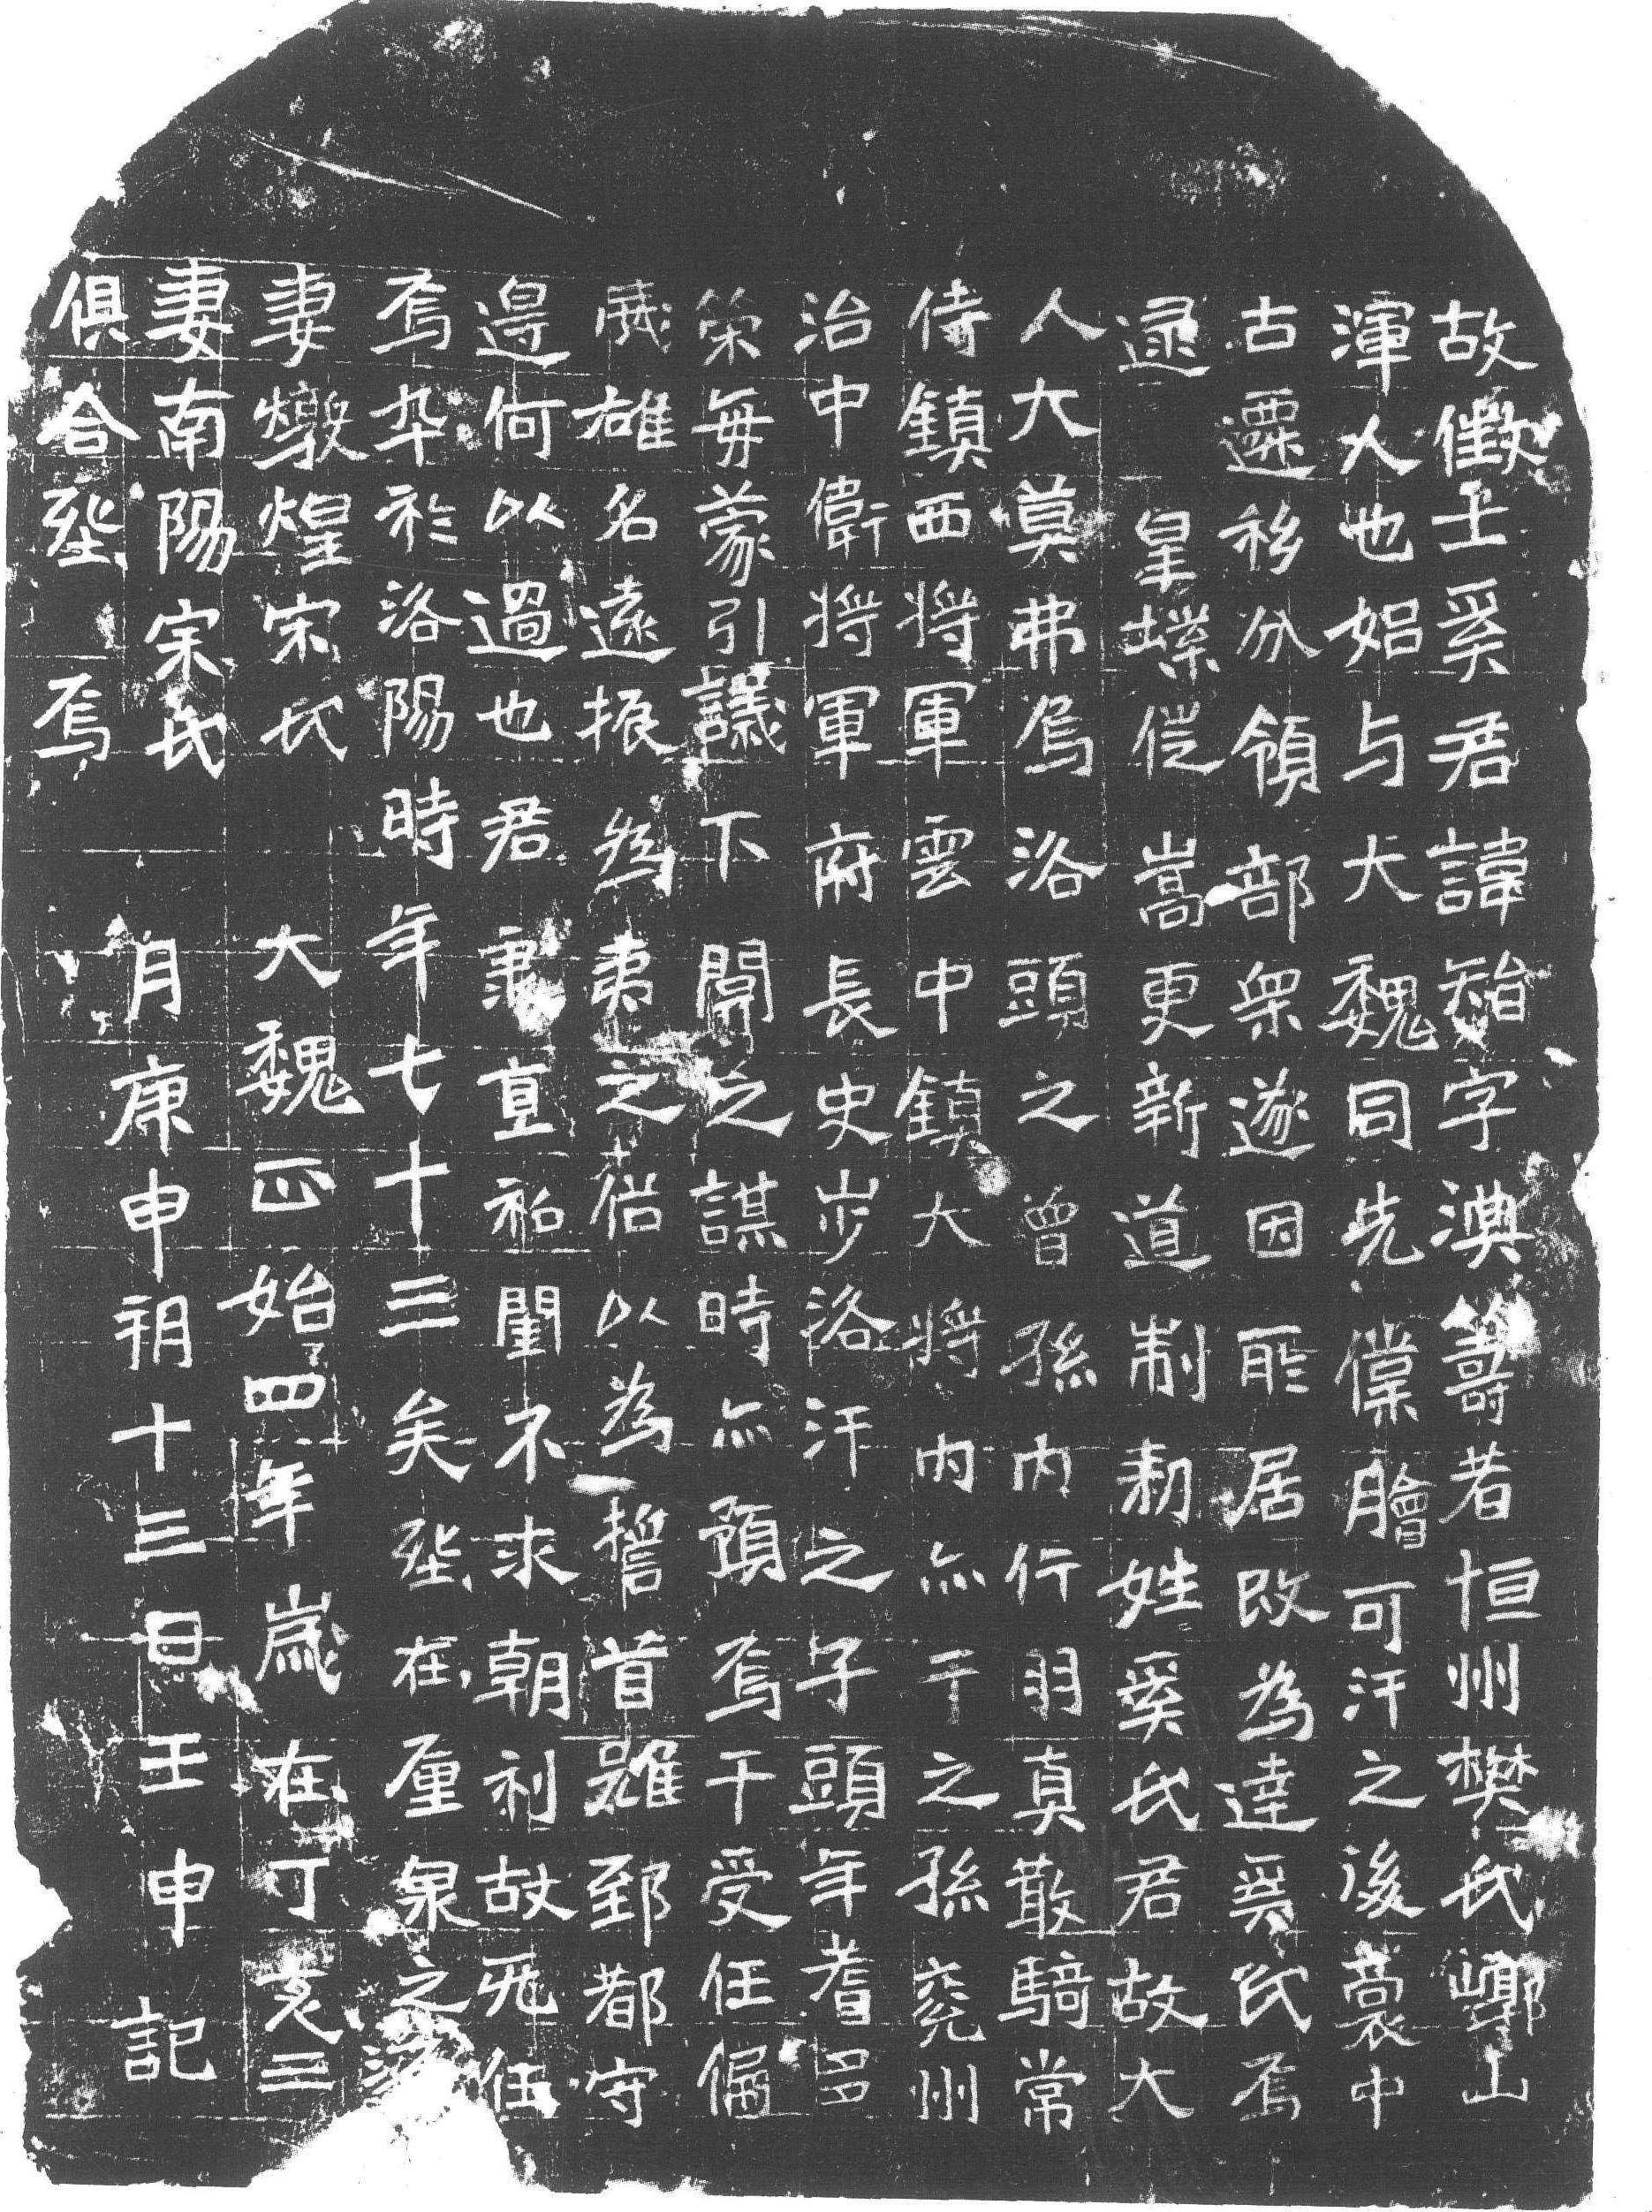 故徵士奚君諱智字淟籌者恒州樊氏崞山
渾人也始与大魏同先僕膾可汗之後裔中
古遷移分領部眾遂因所居改為達奚氏焉
逮皇業徙嵩更新道制勑姓奚氏君故大
人大莫弗烏洛頭之曾孫內行羽真散騎常
侍鎮西將軍雲中鎮大將內亦干之孫兗州
治中衛將軍府長史步洛汗之子頭年耆多
榮每蒙引議下關之謀時亦預焉干受任偏
威雄名遠振為夷之俗以為誓首雖郅都守
邊何以過也君秉直私閨不求朝利故无任
焉卒於洛陽時年七十三矣葬在廛泉之源
妻燉煌宋氏 大魏正始四年歲在丁亥三
妻南陽宗氏 月庚申朔十三日壬申記
俱合葬焉